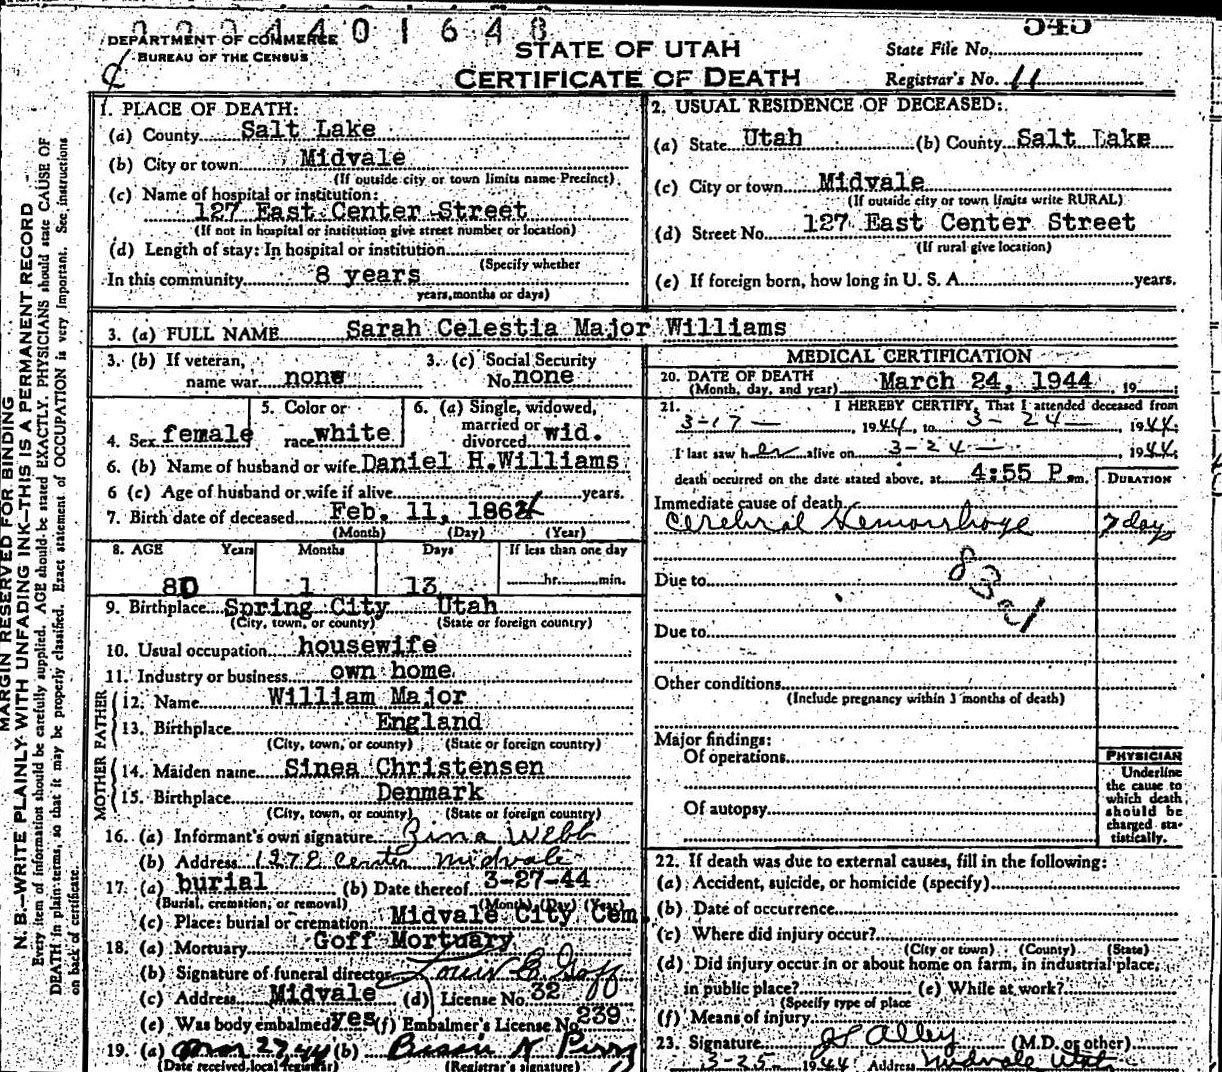 2 2 3 4 4 0 1 6 4 8
DEPARTMENT OF COMMERCE
BUREAU OF THE CENSUS
STATE OF UTAH
CERTIFICATE OF DEATH
545
State File No.
Registrar's No. 11
MARGIN RESERVED FOR BINDING
N. B.—WRITE PLAINLY WITH UNFADING INK—THIS IS A PERMANENT RECORD
Every item of information should be carefully supplied. AGE should be stated EXACTLY. PHYSICIANS should state CAUSE OF
DEATH in plain terms, so that it may be properly classified. Exact statement of OCCUPATION is very important. See instructions
on back of certificate.
1. PLACE OF DEATH:
(a) County Salt Lake
(b) City or town Midvale
(If outside city or town limits name Precinct)
(c) Name of hospital or institution:
127 East Center Street
(If not in hospital or institution give street number or location)
(d) Length of stay: In hospital or institution
(Specify whether
In this community 8 years
years, months or days)
2. USUAL RESIDENCE OF DECEASED:
(a) State Utah (b) County Salt Lake
(c) City or town Midvale
(If outside city or town limits write RURAL)
(d) Street No. 127 East Center Street
(If rural give location)
(e) If foreign born, how long in U. S. A. years.
3. (a) FULL NAME Sarah Celestia Major Williams
3. (b) If veteran, 3. (c) Social Security
name war none No. none
4. Sex female
5. Color or
race white
6. (a) Single, widowed,
married or
divorced wid.
6. (b) Name of husband or wife Daniel H. Williams
6 (c) Age of husband or wife if alive years.
7. Birth date of deceased Feb. 11, 1864
(Month) (Day) (Year)
8. AGE Years Months Days If less than one day
80 1 13 hr. min.
9. Birthplace Spring City Utah
(City, town, or county) (State or foreign country)
10. Usual occupation housewife
11. Industry or business own home
FATHER
12. Name William Major
13. Birthplace England
(City, town, or county) (State or foreign country)
MOTHER
14. Maiden name Sinea Christensen
15. Birthplace Denmark
(City, town, or county) (State or foreign country)
16. (a) Informant's own signature Zina Webb
(b) Address 127 E Center Midvale
17. (a) burial (b) Date thereof 3-27-44
(Burial, cremation, or removal) (Month) (Day) (Year)
(c) Place: burial or cremation Midvale City Cem.
18. (a) Mortuary Goff Mortuary
(b) Signature of funeral director Goff
(c) Address Midvale (d) License No. 32
(e) Was body embalmed? yes (f) Embalmer's License No. 239
19. (a) Mar 27 44 (b)
(Date received local registrar) (Registrar's signature)
MEDICAL CERTIFICATION
20. DATE OF DEATH
(Month, day, and year) March 24, 1944, 19
21. I HEREBY CERTIFY, That I attended deceased from
3-17-, 1944, to 3-24-, 1944;
I last saw her alive on 3-24-, 1944;
death occurred on the date stated above, at 4:55 P m.
DURATION
Immediate cause of death
Cerebral Hemorrhage 7 days
83a1
Due to
Due to
Other conditions
(Include pregnancy within 3 months of death)
Major findings:
Of operations
Of autopsy
PHYSICIAN
Underline
the cause to
which death
should be
charged sta-
tistically.
22. If death was due to external causes, fill in the following:
(a) Accident, suicide, or homicide (specify)
(b) Date of occurrence
(c) Where did injury occur?
(City or town) (County) (State)
(d) Did injury occur in or about home on farm, in industrial place,
in public place? (e) While at work?
(Specify type of place
(f) Means of injury
23. Signature Alley (M.D. or other)
3-25- 1944 Address Midvale Utah